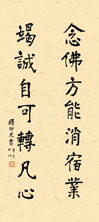 念佛方能消宿業
竭誠自可轉凡心
釋印光書